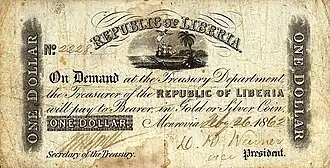 REPUBLIC OF LIBERIA.
No. 2228
ONE DOLLAR
ONE DOLLAR
On Demand at the Treasury Department,
the Treasurer of the REPUBLIC OF LIBERIA
will pay to Bearer, in Gold or Silver Coin,
ONE DOLLAR Monrovia, Feb. 26, 1862
Secretary of the Treasury. President.